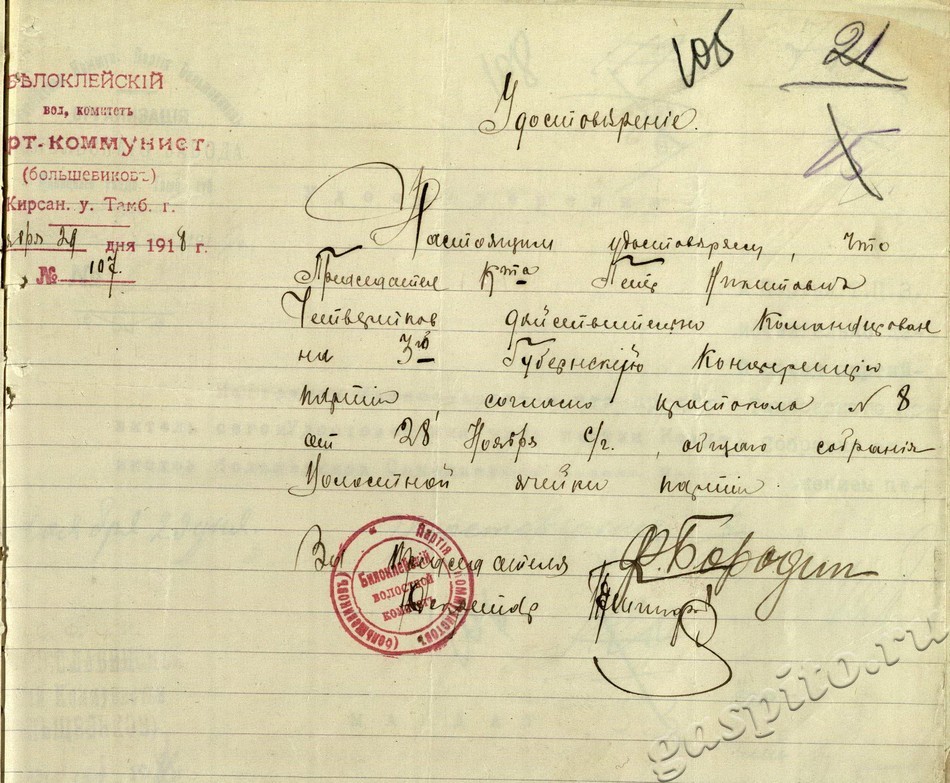 105
21
15
БѢЛОКЛЕЙСКІЙ
вол, комитетъ
рт. КОММУНИСТ.
(большевиковъ)
Кирсан. у. Тамб. г.
ября 29 дня 1918 г.
№ 107.
Удостовѣреніе.
Настоящим удостовѣряем, что
Председателя Кта Петр Никитовичъ
Четвертков действительно командирован
на 3ю Губернскую Конференцію
партіи согласно протокола № 8
от 28 Ноября с/г., общаго собранія
Волостной ячейки партіи
За Председателя Ф. Бородин
Секретарь
Партія коммунистовъ (большевиковъ)
Билоклейскій
волостной
комитетъ
gaspito.ru